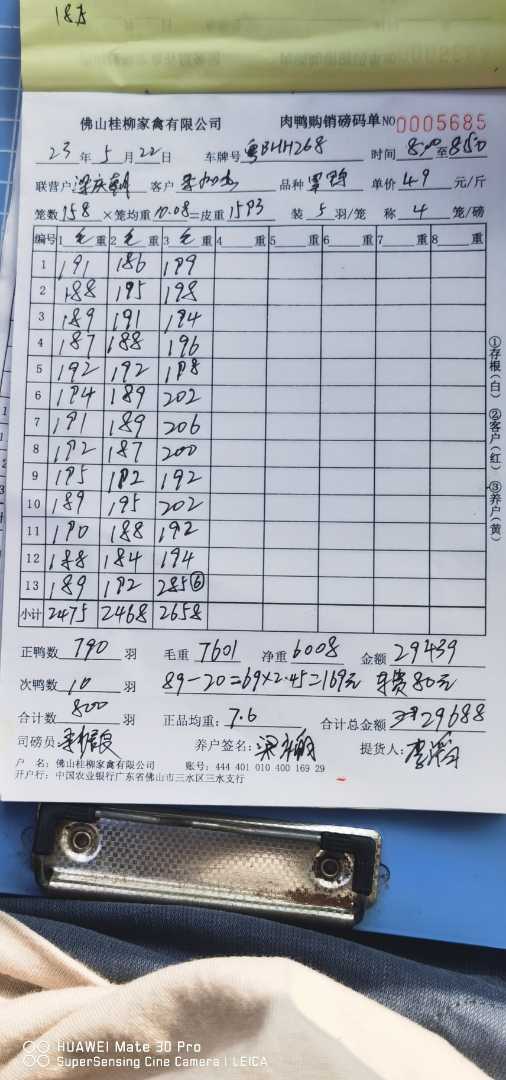 佛山桂柳家禽有限公司 肉鸭购销磅码单 NO 0005685
23 年 5 月 22 日 车牌号 粤BHH268 时间 8:00 至 8:50
联营户 客户 品种 单价 4.9 元/斤
笼数 158 ×笼均重 10.08 =皮重 1593 装 5 羽/笼 称 4 笼/磅
编号 1 毛 重 2 毛 重 3 毛 重 4 重 5 重 6 重 7 重 8 重
1 191 186 199
2 188 195 198
3 189 191 194
4 187 188 196
5 192 192 198
6 194 189 202
7 191 189 206
8 192 187 200
9 195 192 192
10 189 195 202
11 190 188 192
12 188 184 194
13 189 192 285⑥
小计 2475 2468 2658
①存根(白) ②客户(红) ③养户(黄)
正鸭数 790 羽 毛重 7601 净重 6008 金额 29439
次鸭数 10 羽 89-20=69×2.45=169元 车费80元
合计数 800 羽 正品均重: 7.6 合计总金额 29688
司磅员: 养户签名: 提货人:
户 名: 佛山桂柳家禽有限公司 账号: 444 401 010 400 169 29
开户行: 中国农业银行广东省佛山市三水区三水支行
HUAWEI Mate 30 Pro
SuperSensing Cine Camera | LEICA